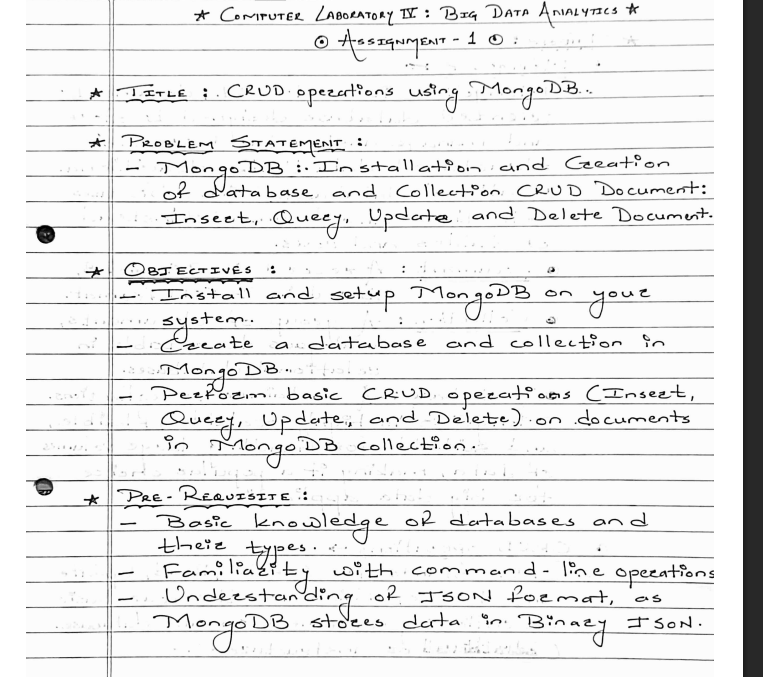 ★ COMPUTER LABORATORY IV : BIG DATA ANALYTICS ★
⊙ ASSIGNMENT - 1 ⊙ :
★ TITLE : CRUD operations using MongoDB.
★ PROBLEM STATEMENT :
- MongoDB : Installation and Creation
of database and Collection CRUD Document:
Insert, Query, Update and Delete Document.
★ OBJECTIVES :
- Install and setup MongoDB on your
system.
- Create a database and collection in
MongoDB.
- Perform basic CRUD operations (Insert,
Query, Update, and Delete) on documents
in MongoDB collection.
★ PRE-REQUISITE :
- Basic knowledge of databases and
their types.
- Familiarity with command-line operations
- Understanding of JSON format, as
MongoDB stores data in Binary JSON.